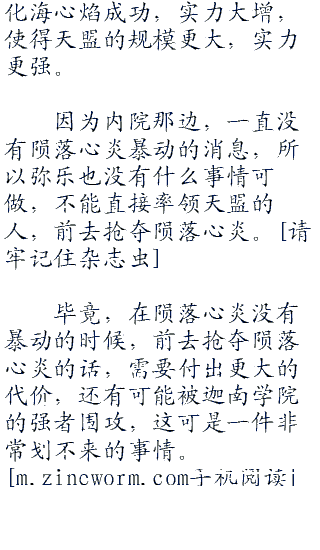 化海心焰成功，实力大增，
使得天盟的规模更大，实力
更强。
因为内院那边，一直没
有陨落心炎暴动的消息，所
以弥乐也没有什么事情可
做，不能直接率领天盟的
人，前去抢夺陨落心炎。[请
牢记住杂志虫]
毕竟，在陨落心炎没有
暴动的时候，前去抢夺陨落
心炎的话，需要付出更大的
代价，还有可能被迦南学院
的强者围攻，这可是一件非
常划不来的事情。
[m.zincworm.com手机阅读]